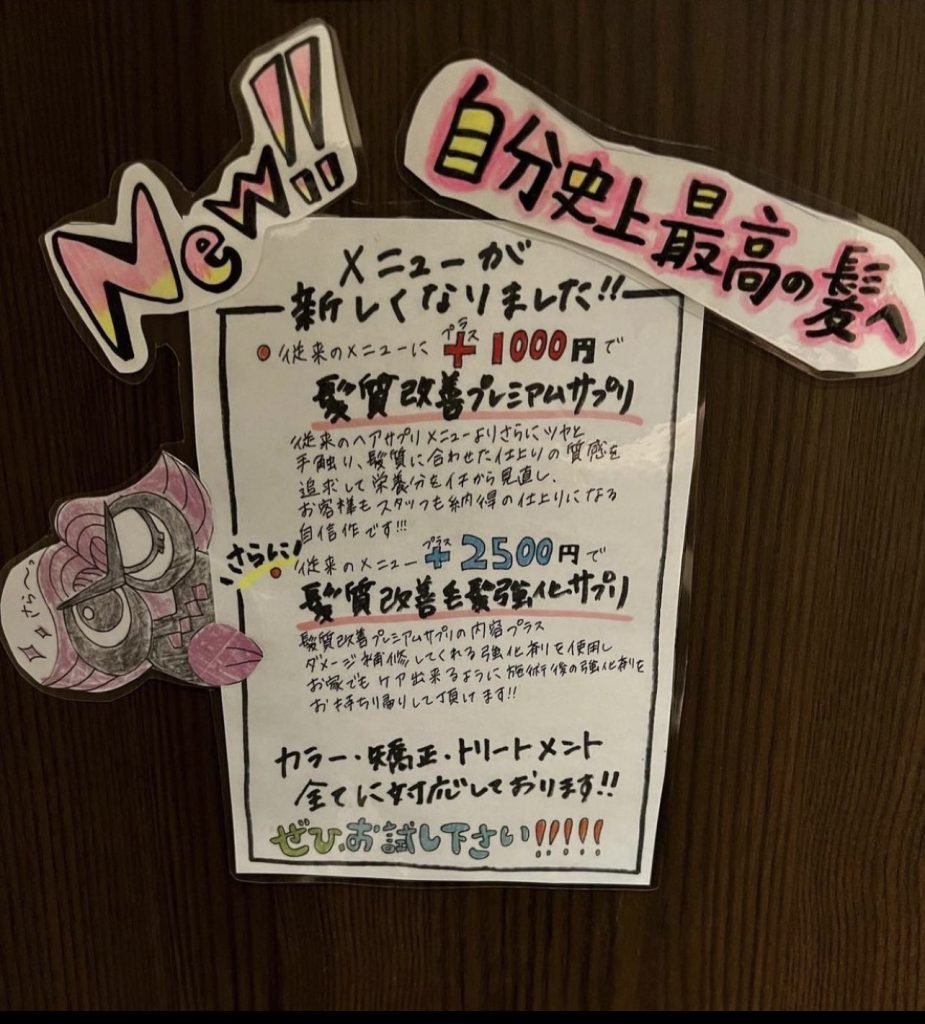 New!!
自分史上最高の髪へ
メニューが
新しくなりました!!
従来のメニューに +プラス 1000円で
髪質改善プレミアムサプリ
従来のヘアサプリメニューよりさらにツヤと
手触り、髪質に合わせた仕上りの質感を
追求して栄養分をイチから見直し、
お客様もスタッフも納得の仕上りになる
自信作です!!!
さらに!
従来のメニュー +プラス 2500円で
髪質改善毛髪強化サプリ
髪質改善プレミアムサプリの内容プラス
ダメージ補修してくれる強化剤を使用し
お家でもケア出来るように施術後の強化剤を
お持ち帰りして頂けます!!
カラー・矯正・トリートメント
全てに対応しております!!
ぜひ、お試し下さい!!!!!
さら〜っ